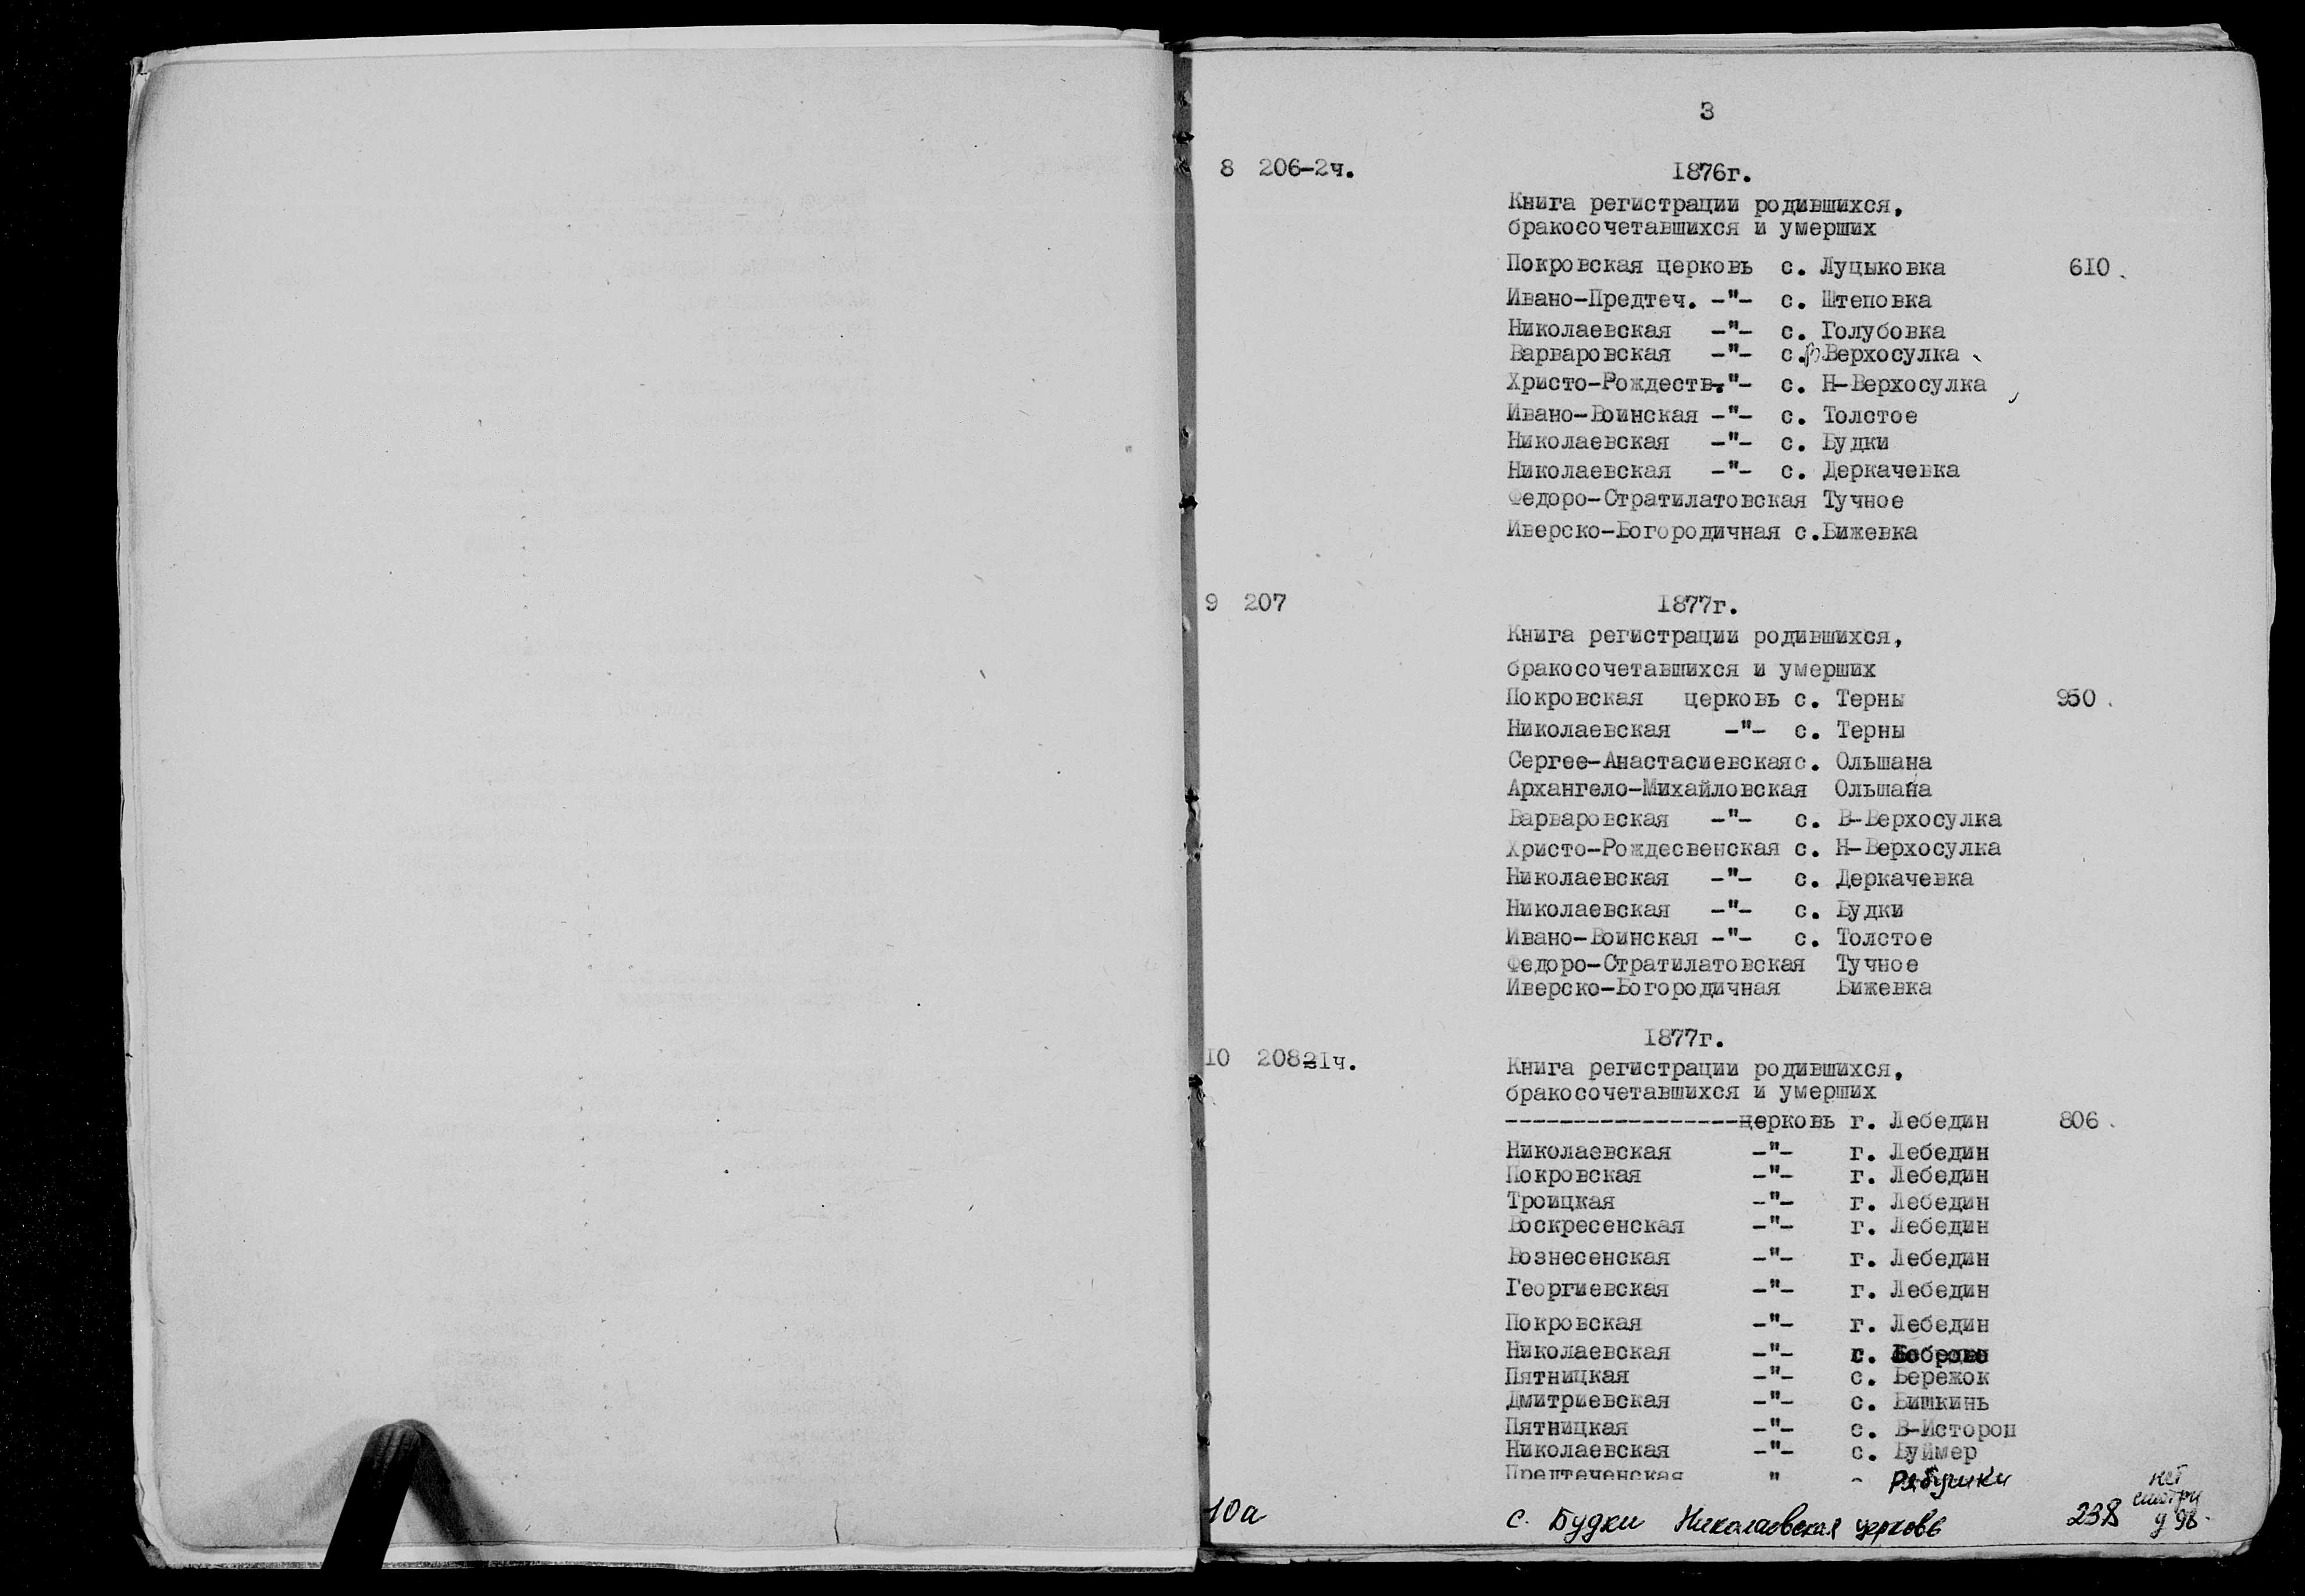 3
8 206-2ч. 1876г.
Книга регистрации родившихся,
бракосочетавшихся и умерших
Покровская церковь с. Луцыковка 610.
Ивано-Предтеч. -"- с. Штеповка
Николаевская -"- с. Голубовка
Варваровская -"- с. В-Верхосулка
Христо-Рождеств.-"- с. Н-Верхосулка
Ивано-Воинская -"- с. Толстое
Николаевская -"- с. Будки
Николаевская -"- с. Деркачевка
Федоро-Стратилатовская Тучное
Иверско-Богородичная с.Бижевка
9 207 1877г.
Книга регистрации родившихся,
бракосочетавшихся и умерших
Покровская церковь с. Терны 950.
Николаевская -"- с. Терны
Сергее-Анастасиевская с. Ольшана
Архангело-Михайловская Ольшана
Варваровская -"- с. В-Верхосулка
Христо-Рождесвенская с. Н-Верхосулка
Николаевская -"- с. Деркачевка
Николаевская -"- с. Будки
Ивано-Воинская -"- с. Толстое
Федоро-Стратилатовская Тучное
Иверско-Богородичная Бижевка
1877г.
10 208-1ч. Книга регистрации родившихся,
бракосочетавшихся и умерших
-----------------церковь г. Лебедин 806.
Николаевская -"- г. Лебедин
Покровская -"- г. Лебедин
Троицкая -"- г. Лебедин
Воскресенская -"- г. Лебедин
Вознесенская -"- г. Лебедин
Георгиевская -"- г. Лебедин
Покровская -"- г. Лебедин
Николаевская -"- с.
Пятницкая -"- с. Бережок
Дмитриевская -"- с. Бишкинь
Пятницкая -"- с. В-Истороп
Николаевская -"- с. Буймер
Предтеченская " Рябушки
10а с. Будки Николаевская церковь 238 нет смотри